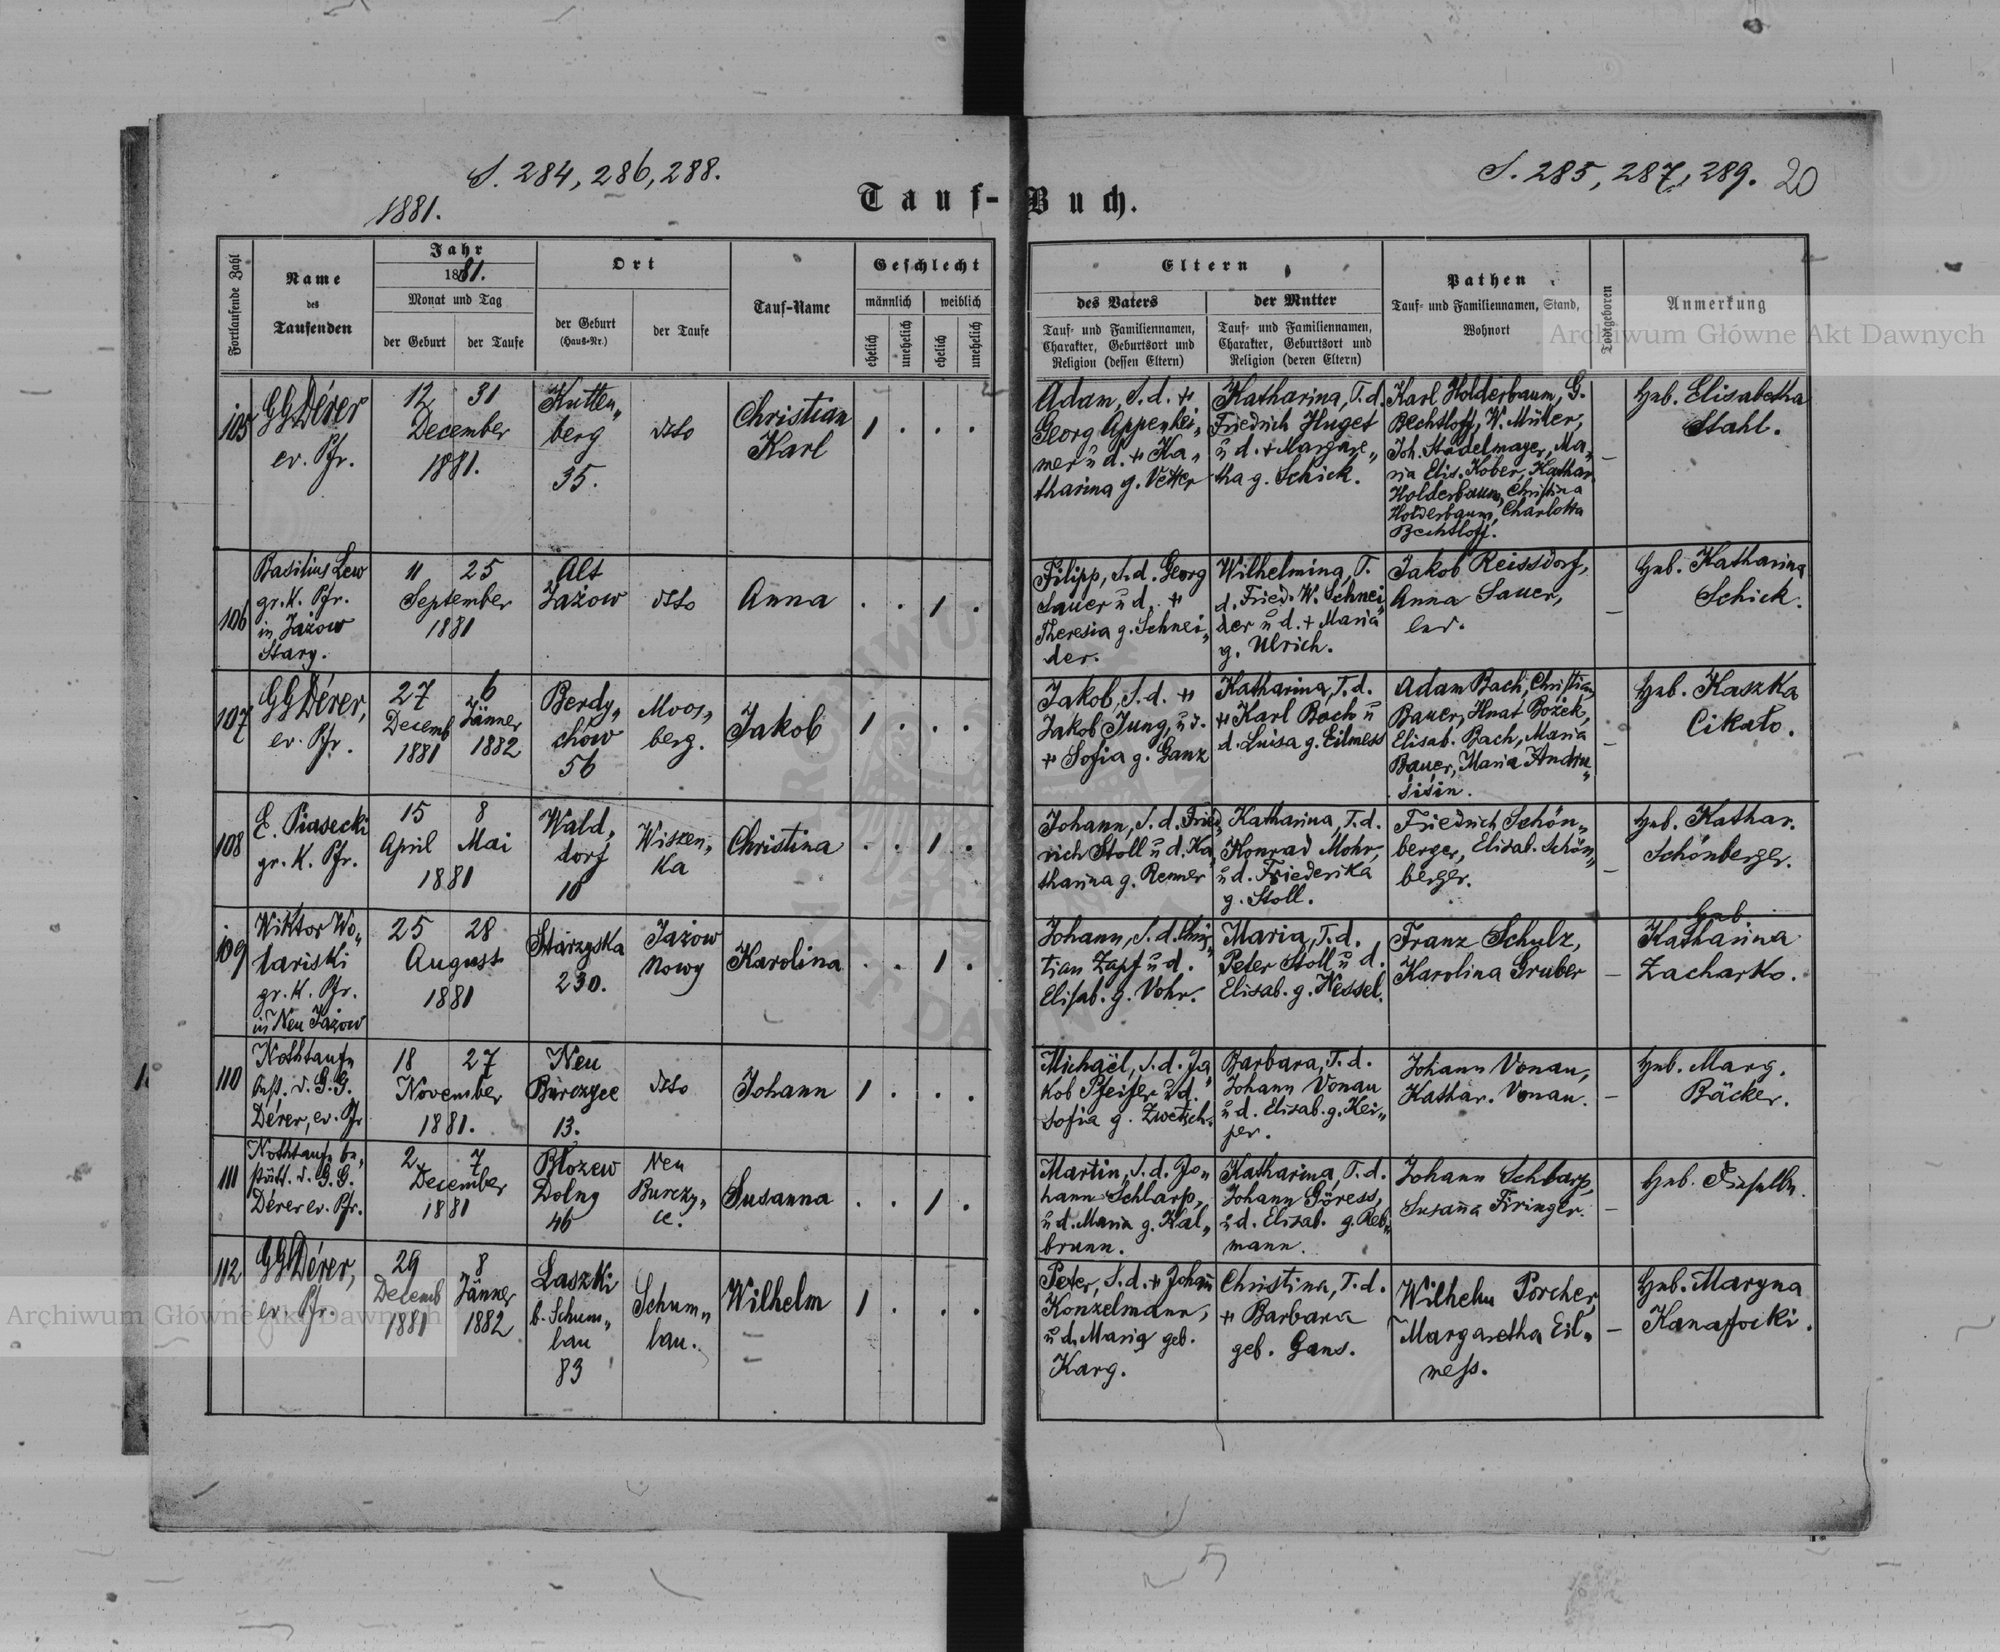 S. 284, 286, 288.
1881.
S. 285, 287, 289. 20
Tauf-Buch.
Fortlaufende Zahl
Name
des
Taufenden
Jahr
1881.
Monat und Tag
der Geburt
der Taufe
Ort
der Geburt
(Haus-Nr.)
der Taufe
Tauf-Name
Geschlecht
männlich
weiblich
ehelich
unehelich
ehelich
unehelich
Eltern
des Vaters
Tauf- und Familiennamen,
Charakter, Geburtsort und
Religion (dessen Eltern)
der Mutter
Tauf- und Familiennamen,
Charakter, Geburtsort und
Religion (deren Eltern)
Pathen
Tauf- und Familiennamen, Stand,
Wohnort
Todtgeboren
Anmerkung
105
GGDérer
ev. Pfr.
12 31
December
1881.
Kutten„
berg
35.
dtto
Christian
Karl
1 . . .
Adam, S.d. +
Georg Appenhei„
mer u d. + Ka„
tharina g. Vetter
Katharina, T.d.
Friedrich Huget
u d. + Margare„
tha g. Schick.
Karl Holderbaum, G.
Bechtloff, W. Müller,
Joh. Stadelmayer, Ma„
ria Elis. Kober, Kathar.
Holderbaum, Christina
Holderbaum, Charlotta
Bechtloff.
–
Heb. Elisabetha
Stahl.
106
Basilius Lew
gr. K. Pfr.
in Jażow
Stary.
11 25
September
1881
Alt
Jażow
dtto
Anna
. . 1 .
Filipp, S.d. Georg
Sauer u d. +
Theresia g. Schnei„
der.
Wilhelmina, T.
d. Fried. W. Schnei„
der u d. + Maria
g. Ulrich.
Jakob Reissdorf,
Anna Sauer,
led.
–
Heb. Katharina
Schick.
107
GGDérer,
ev. Pfr.
27 6
Decemb Jänner
1881 1882
Berdy„
chow
56
Moos„
berg.
Jakob
1 . . .
Jakob, S.d. +
Jakob Jung, u d.
+ Sofia g. Ganz
Katharina, T.d.
+ Karl Bach u
d. Luisa g. Eilmess
Adam Bach, Christian
Bauer, Hnat Bożek,
Elisab. Bach, Maria
Bauer, Maria Andru„
sisin.
–
Heb. Kaszka
Cikało.
108
E. Piasecki
gr. K. Pfr.
15 8
April Mai
1881
Wald„
dorf
10
Wiszen„
ka
Christina
. . 1 .
Johann, S.d. Fried„
rich Stoll u d. Ka„
tharina g. Renner
Katharina, T.d.
Konrad Mohr,
u d. Friederika
g. Stoll.
Friedrich Schön„
berger, Elisab. Schön„
berger.
–
Heb. Kathar.
Schönberger.
109
Wiktor Wo„
lariski
gr. K. Pfr.
in Neu Jażow
25 28
August
1881
Starzyska
230.
Jażow
Nowy
Karolina
. . 1 .
Johann, S.d. Chris„
tian Zapf u d.
Elisab. g. Vohr.
Maria, T.d.
Peter Stoll u d.
Elisab. g. Kessel.
Franz Schulz,
Karolina Gruber
–
Heb.
Katharina
Zacharko.
110
Nothtaufe
best. d. G.G.
Dérer, ev. Pfr
18 27
November
1881.
Neu
Burczyce
13.
dtto
Johann
1 . . .
Michael, S.d. Ja„
kob Pfeifer u d.
Sofia g. Zwetsch.
Barbara, T.d.
Johann Vonau
u d. Elisab. g. Kei„
per.
Johann Vonau,
Kathar. Vonau.
–
Heb. Marg.
Bäcker.
111
Nothtaufe be„
stätt. d. G.G.
Dérer ev. Pfr.
2 7
December
1881
Błozew
Dolny
46
Neu
Burczy„
ce.
Susanna
. . 1 .
Martin, S.d. Jo„
hann Schlarp,
u d. Maria g. Kal„
brunn.
Katharina, T.d.
Johann Göress,
u d. Elisab. g. Reb„
mann.
Johann Schlarp,
Susanna Firinger.
–
Heb. Dieselbe.
112
GGDérer,
ev. Pfr.
29 8
Decemb Jänner
1881 1882
Laszki
b. Schum„
lau
83
Schum„
lau.
Wilhelm
1 . . .
Peter, S.d. + Johann
Konzelmann,
u d. Maria geb.
Karg.
Christina, T.d.
+ Barbara
geb. Gans.
Wilhelm Porcher,
Margaretha Eil„
mess.
–
Heb. Maryna
Kanafocki.
Archiwum Główne Akt Dawnych
Archiwum Główne Akt Dawnych